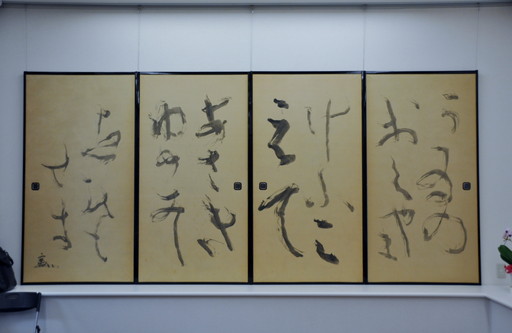 うゐの
おくやま
けふこ
えて
あさきゆ
めみし
ゑひも
せす